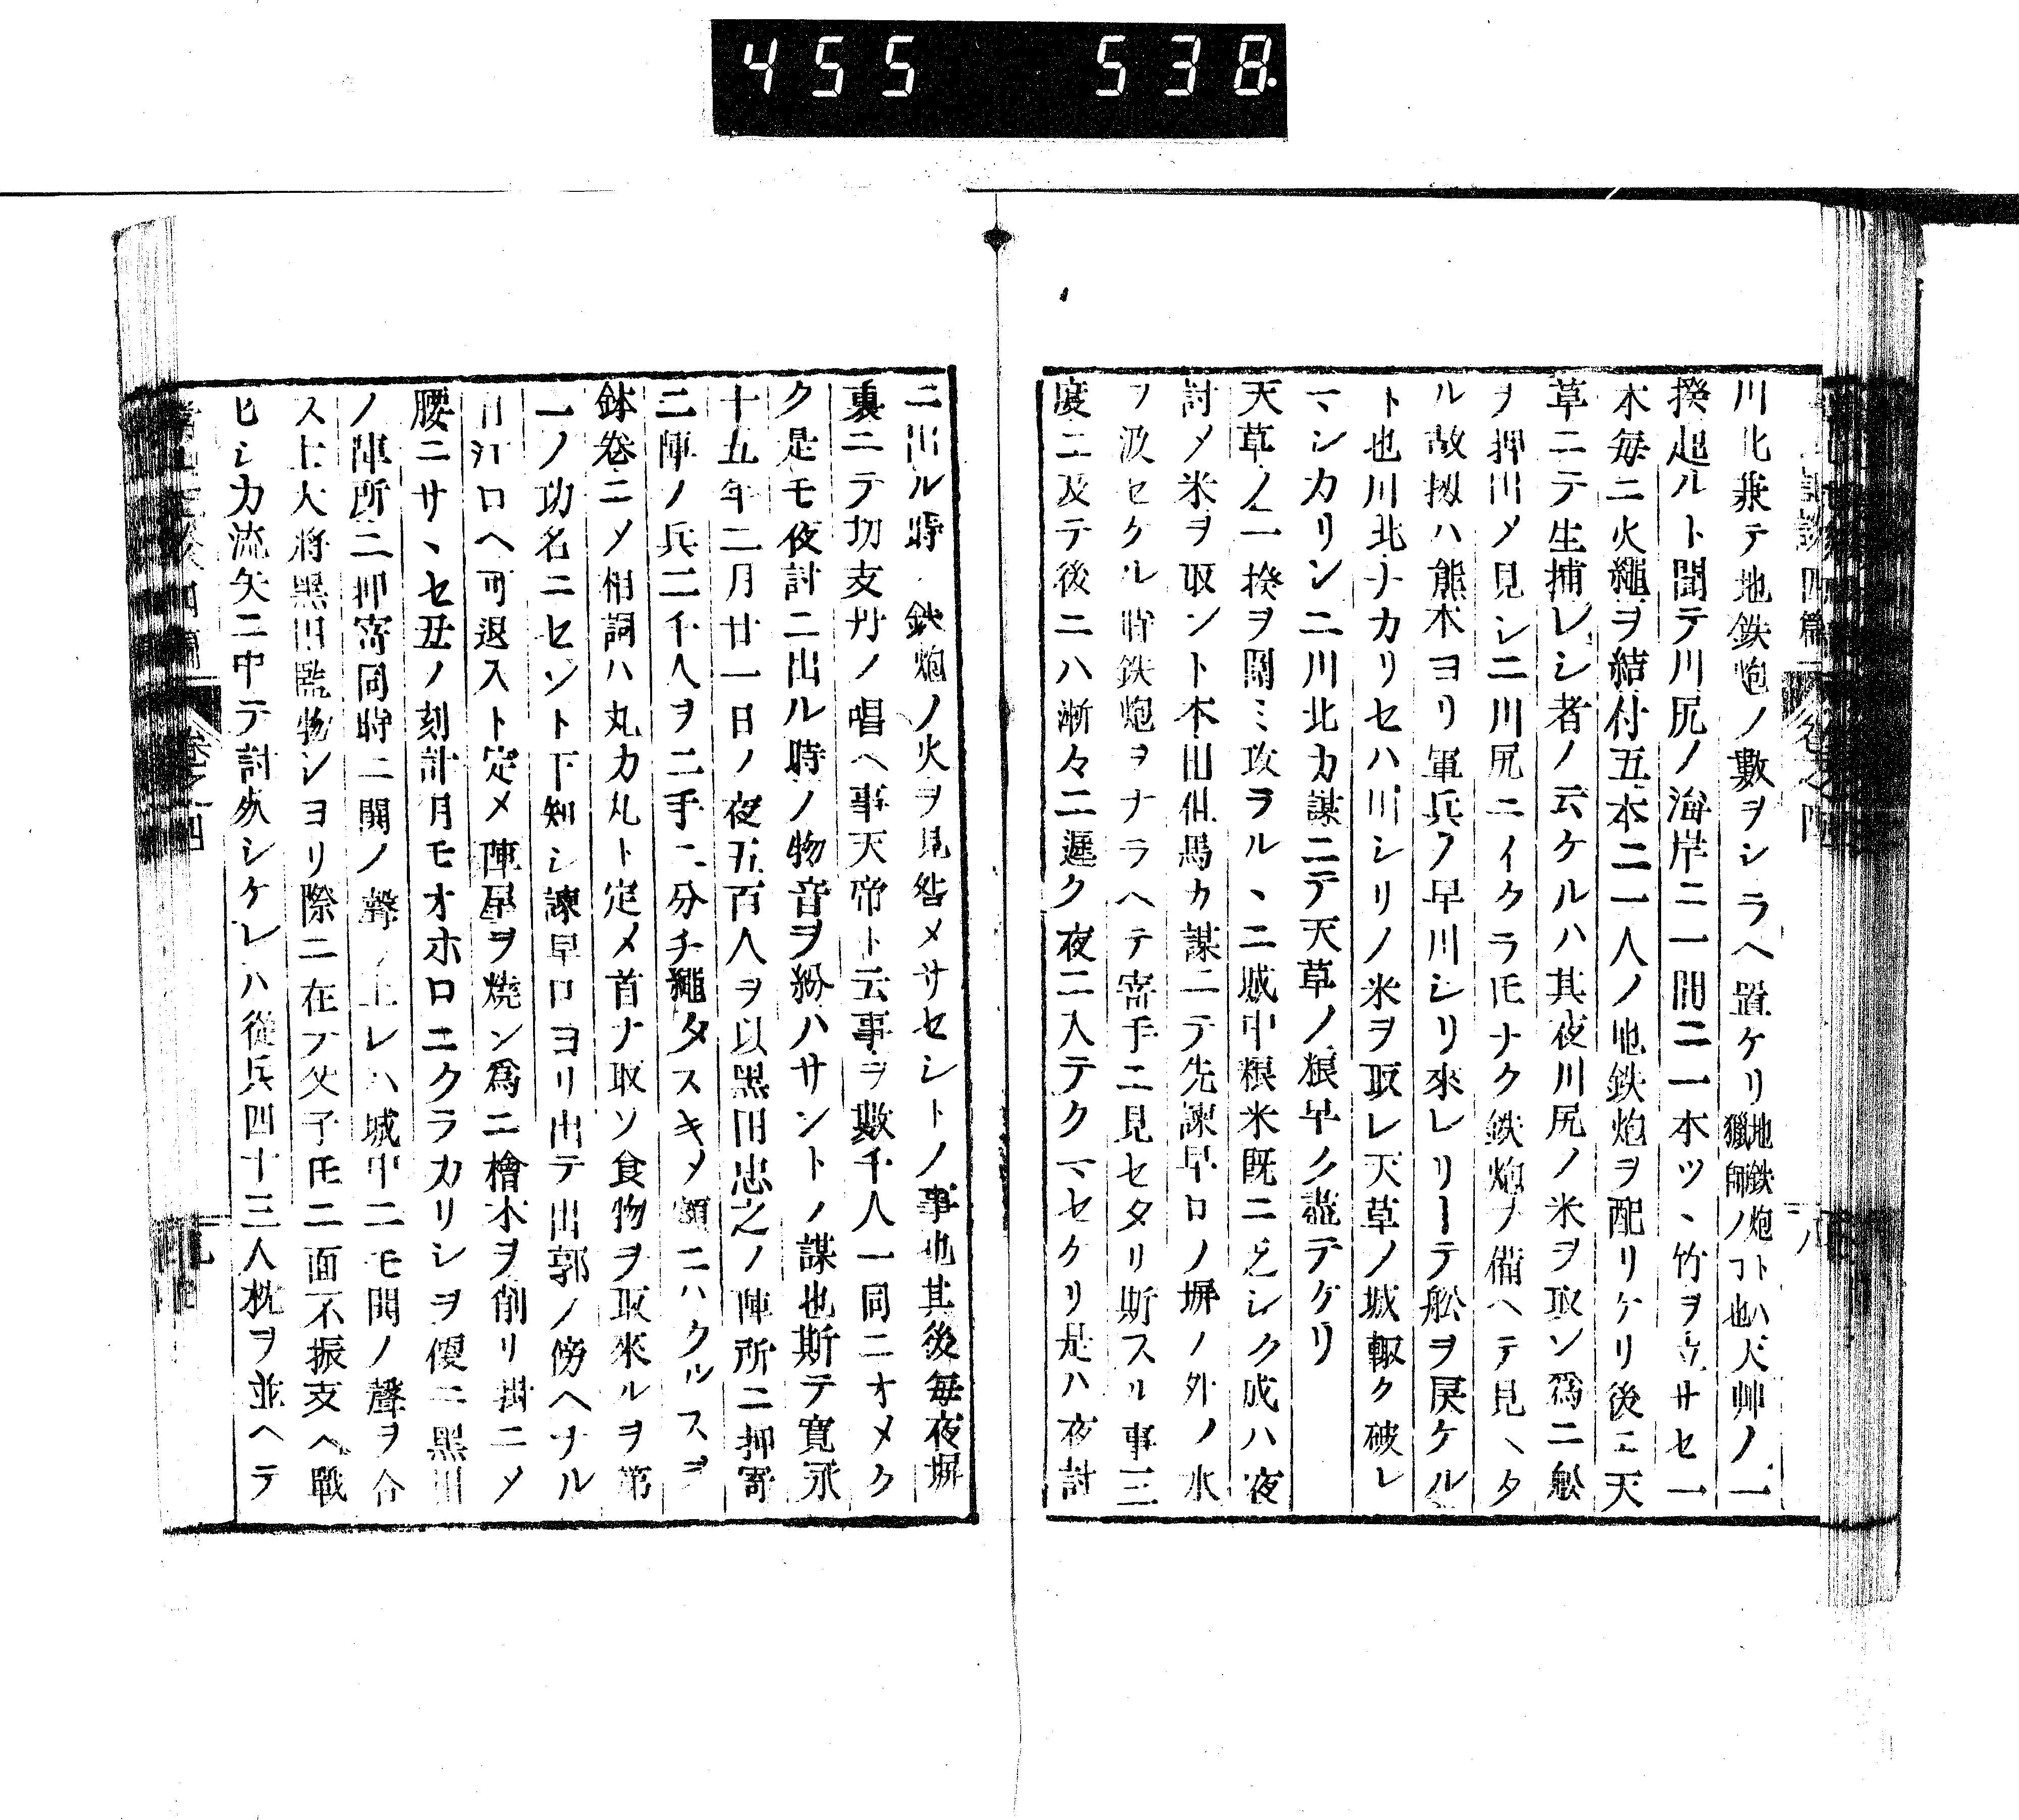 455 538
川北兼テ地鉄炮ノ數ヲシラヘ置ケリ地鉄炮トハ獵師ノコト也天艸ノ一
揆起ルト聞テ川尻ノ海岸ニ一間ニ一本ツヽ竹ヲ立サセ一
本毎ニ火繩ヲ結付五本ニ一人ノ地鉄炮ヲ配リケリ後ニ天
草ニテ生捕レシ者ノ云ケルハ其夜川尻ノ米ヲ取ン爲ニ舩
ヲ押出メ見シニ川尻ニイクラ𪜈ナク鉄炮ヲ備ヘテ見ヘタ
ル故扨ハ熊本ヨリ軍兵ノ早川シリ來レリーテ舩ヲ戻ケル
ト也川北ナカリセハ川シリノ米ヲ取レ天草ノ城輙ク破レ
マシカリシニ川北カ謀ニテ天草ノ粮早ク盡テケリ
天草ノ一揆ヲ圍ミ攻ラルヽニ城中粮米既ニ乏シク成ハ夜
討メ米ヲ取ント本田但馬カ謀ニテ先諫早口ノ塀ノ外ノ水
ヲ汲セケル時鉄炮ヲナラヘテ寄手ニ見セタリ斯スル事三
度ニ及テ後ニハ漸々ニ遲ク夜ニ入テクマセケリ是ハ夜討
卷之四
八
ニ出ル時鉄炮ノ火ヲ見咎メサセシトノ事也其後毎夜塀
裏ニテ切支丹ノ唱ヘ事天帝ト云事ヲ數千人一同ニオメク
ク是モ夜討ニ出ル時ノ物音ヲ紛ハサントノ謀也斯テ寛永
十五年二月廿一日ノ夜五百人ヲ以黒田忠之ノ陣所ニ押寄
二陣ノ兵二千人ヲ二手ニ分チ繩タスキメ頭ニハクルスヲ
鉢卷ニメ相詞ハ丸カ丸ト定メ首ナ取ソ食物ヲ取來ルヲ第
一ノ功名ニセソト下知シ諫早口ヨリ出テ出郭ノ傍ヘナル
田江口ヘ可退スト定メ陣屋ヲ焼ン爲ニ檜木ヲ削リ掛ニメ
腰ニサヽセ丑ノ刻計月モオホロニクラカリシヲ便ニ黒田
ノ陣所ニ押寄同時ニ閧ノ聲ノ上レハ城中ニモ閧ノ聲ヲ合
ス上大將黒田監物シヨリ際ニ在テ父子𪜈ニ面不振支ヘ戰
ヒシカ流矢ニ中テ討死シケレハ從兵四十三人枕ヲ並ヘテ
卷之四
九